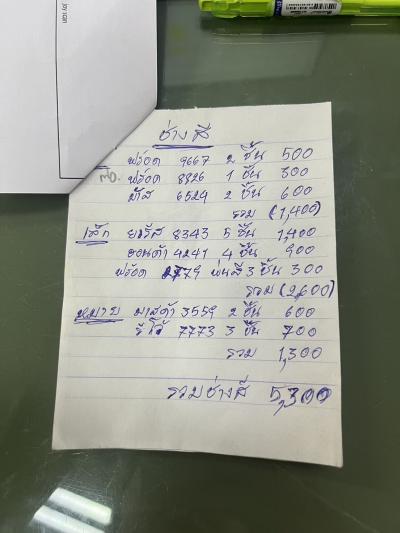 ช่างสี
ฟร์อด 9667 2 ชิ้น 500
ฟร์อด 8826 1 ชิ้น 300
มาส 6524 2 ชิ้น 600
รวม (1,400)
เล็ก ยารีส 8343 5 ชิ้น 1,400
ฮอนด้า 4241 4 ชิ้น 900
ฟร์อด 2779 พ่นสี 3 ชิ้น 300
รวม (2,600)
หมาย มาสด้า 3559 2 ชิ้น 600
รีโว้ 7773 3 ชิ้น 700
รวม 1,300
รวมช่างสี 5,300